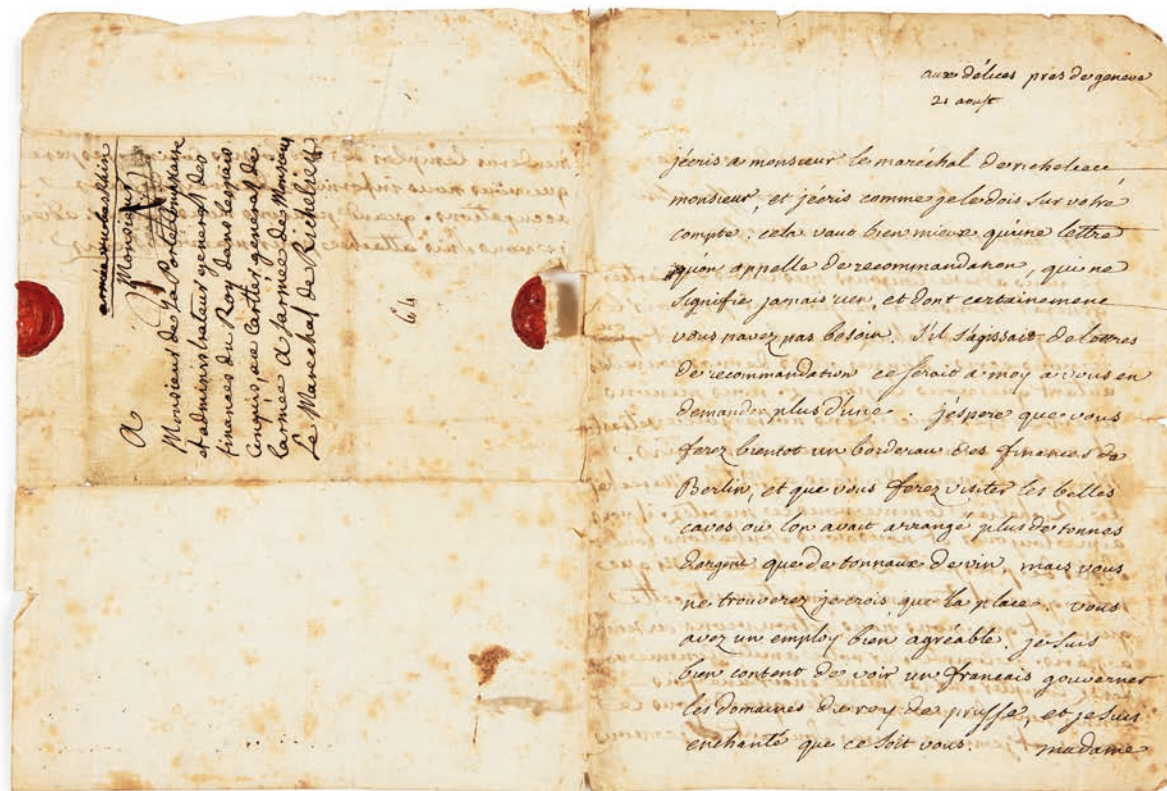 armée du bas rhin
A
Monsieur
Monsieur de La Porte Commissaire
et administrateur general des
finances du Roy dans les païs
Conquis, au Cartier general de
larmée a larmée de Monsieur
Le Marechal de Richelieu
aux délices pres de geneve
21 aoust
jécris a monsieur le maréchal de richelieu
monsieur, et jécris comme je le dois sur votre
compte. cela vaut bien mieux qu'une lettre
qu'on appelle de recommandation, qui ne
signifie jamais rien, et dont certainement
vous navez pas besoin. S'il s'agissait de lettres
de recommandation ce serait a moy a vous en
demander plus d'une. jéspere que vous
ferez bientot un bordereau des finances de
Berlin, et que vous ferez visiter les belles
caves ou lon avait arrangé plus de tonnes
dargent que de tonnaux de vin, mais vous
ne trouverez je crois que la place. vous
avez un employ bien agréable. je suis
bien content de voir un francais gouverner
les domaines du roy de prusse, et je suis
enchanté que ce soit vous. madame